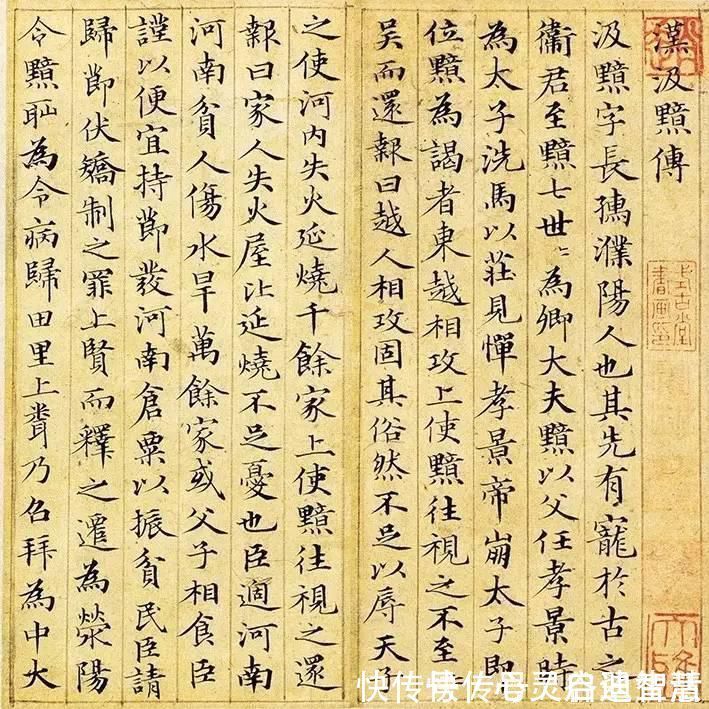 漢汲黯傳
汲黯字長孺濮陽人也其先有寵於古之
衛君至黯七世〻為卿大夫黯以父任孝景時
為太子洗馬以莊見憚孝景帝崩太子即
位黯為謁者東越相攻上使黯往視之不至
吴而還報曰越人相攻固其俗然不足以辱天子
之使河内失火延燒千餘家上使黯往視之還
報曰家人失火屋比延燒不足憂也臣適河南
河南貧人傷水旱萬餘家或父子相食臣
謹以便宜持節發河南倉粟以振貧民臣請
歸節伏矯制之罪上賢而釋之遷為滎陽
令黯恥為令病歸田里上聞乃召拜為中大